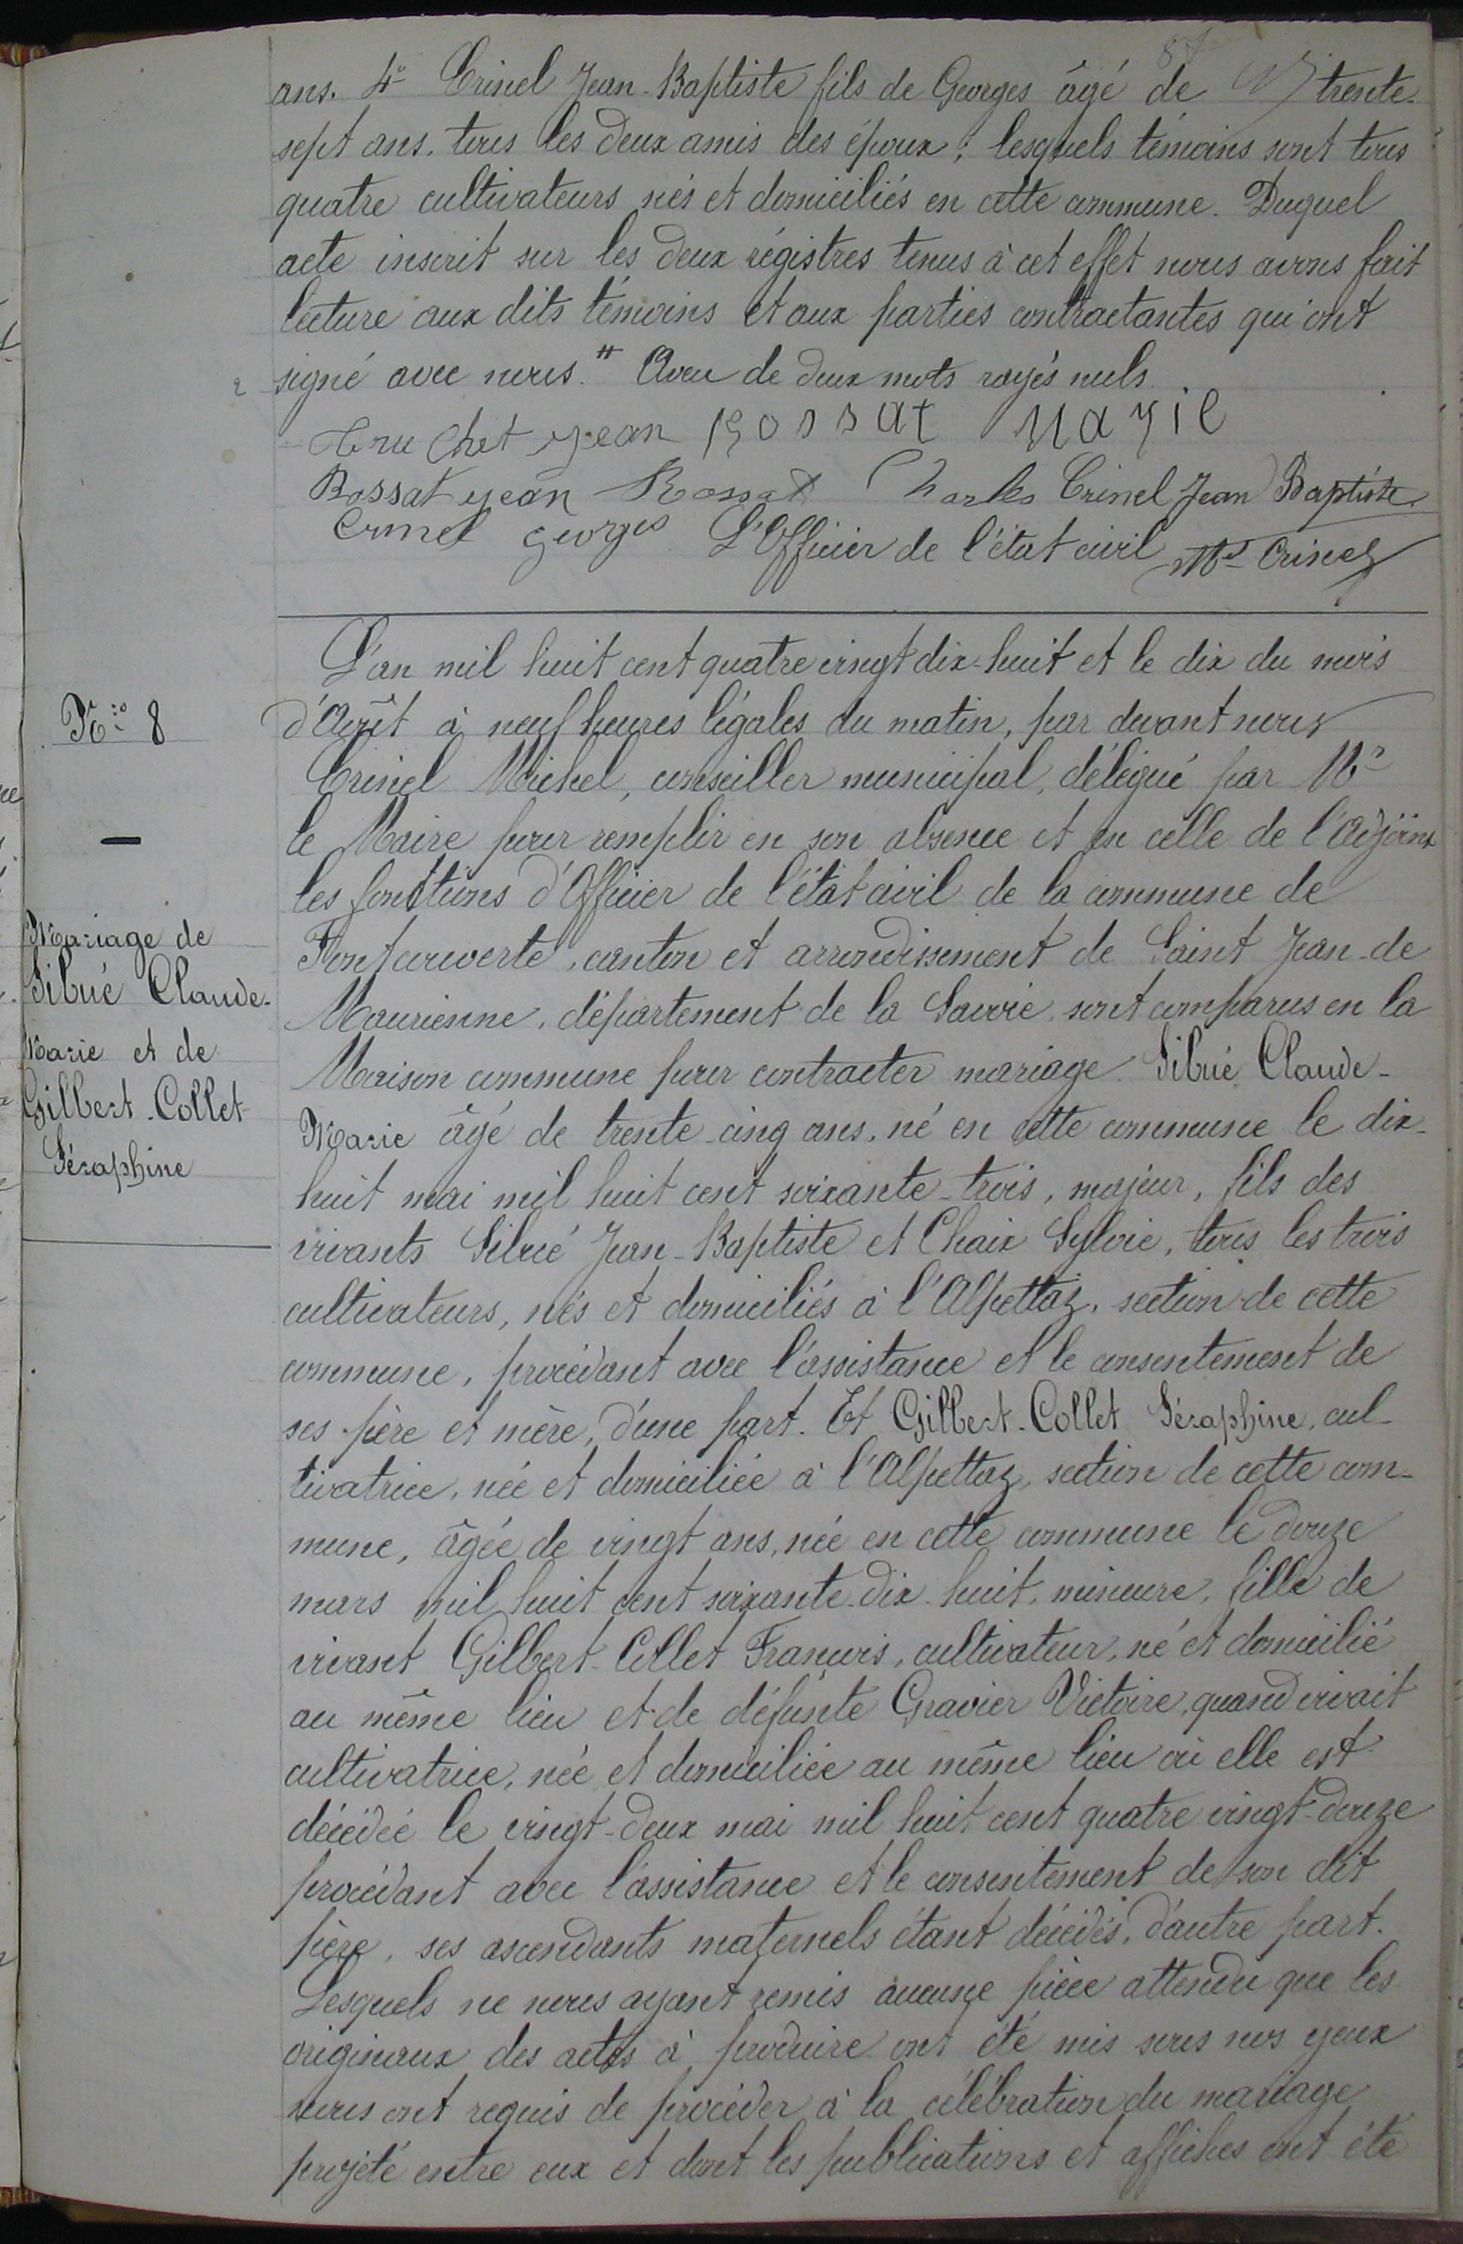 ans. 4° Crinel Jean-Baptiste fils de Georges âgé de trente-
sept ans. tous les deux amis des époux; lesquels témoins sont tous
quatre cultivateurs nés et domiciliés en cette commune. Duquel
acte inscrit sur les deux régistres tenus à cet effet nous avons fait
lecture aux dits témoins et aux parties contractantes qui ont
signé avec nous. # Aveu de deux mots rayés nuls.
Truchet Jean Bossat Marie
Bossat Jean Bossat Charles Crinel Jean Baptiste
Crinel Georges L'Officier de l'état civil Mel Crinel
N° 8
Mariage de
Sibué Claude-
Marie et de
Gilbert-Collet
Séraphine
L'an mil huit cent quatre vingt dix-huit et le dix du mois
d'Août à neuf heures légales du matin, par devant nous
Crinel Michel, conseiller municipal, délégué par Mr
le Maire pour remplir en son absence et en celle de l'Adjoint
les fonctions d'Officier de l'état civil de la commune de
Fontcouverte, canton et arrondissement de Saint Jean-de
Maurienne, département de la Savoie, sont comparus en la
Maison commune pour contracter mariage Sibué Claude-
Marie âgé de trente-cinq ans, né en cette commune le dix-
huit mai mil huit cent soixante-trois, majeur, fils des
vivants Sibué Jean-Baptiste et Chaix Sylvie, tous les trois
cultivateurs, nés et domiciliés à l'Alpettaz, section de cette
commune, procédant avec l'assistance et le consentement de
ses père et mère, d'une part. Et Gilbert-Collet Séraphine, cul-
tivatrice, née et domiciliée à l'Alpettaz, section de cette com-
mune, âgée de vingt ans, née en cette commune le douze
mars mil huit cent soixante-dix-huit, mineure, fille de
vivant Gilbert-Collet François, cultivateur, né et domicilié
au même lieu et de défunte Gravier Victoire, quand vivait
cultivatrice, née et domiciliée au même lieu où elle est
décédée le vingt-deux mai mil huit cent quatre vingt-douze
procédant avec l'assistance et le consentement de son dit
père, ses ascendants maternels étant décédés, d'autre part.
Lesquels ne nous ayant remis aucune pièce attendu que les
originaux des actes à produire ont été mis sous nos yeux
nous ont requis de procéder à la célébration du mariage
projeté entre eux et dont les publications et affiches ont été